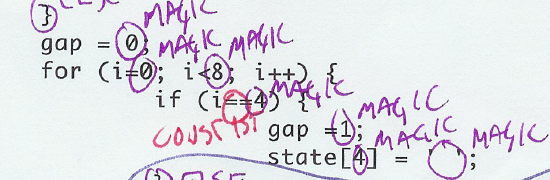 } MAGIC
gap = 0; MAGIC MAGIC
for (i=0; i<8; i++) {
if (i==4) { MAGIC
CONST IST gap =1; MAGIC
state[4] = ' '; MAGIC MAGIC
ELSE